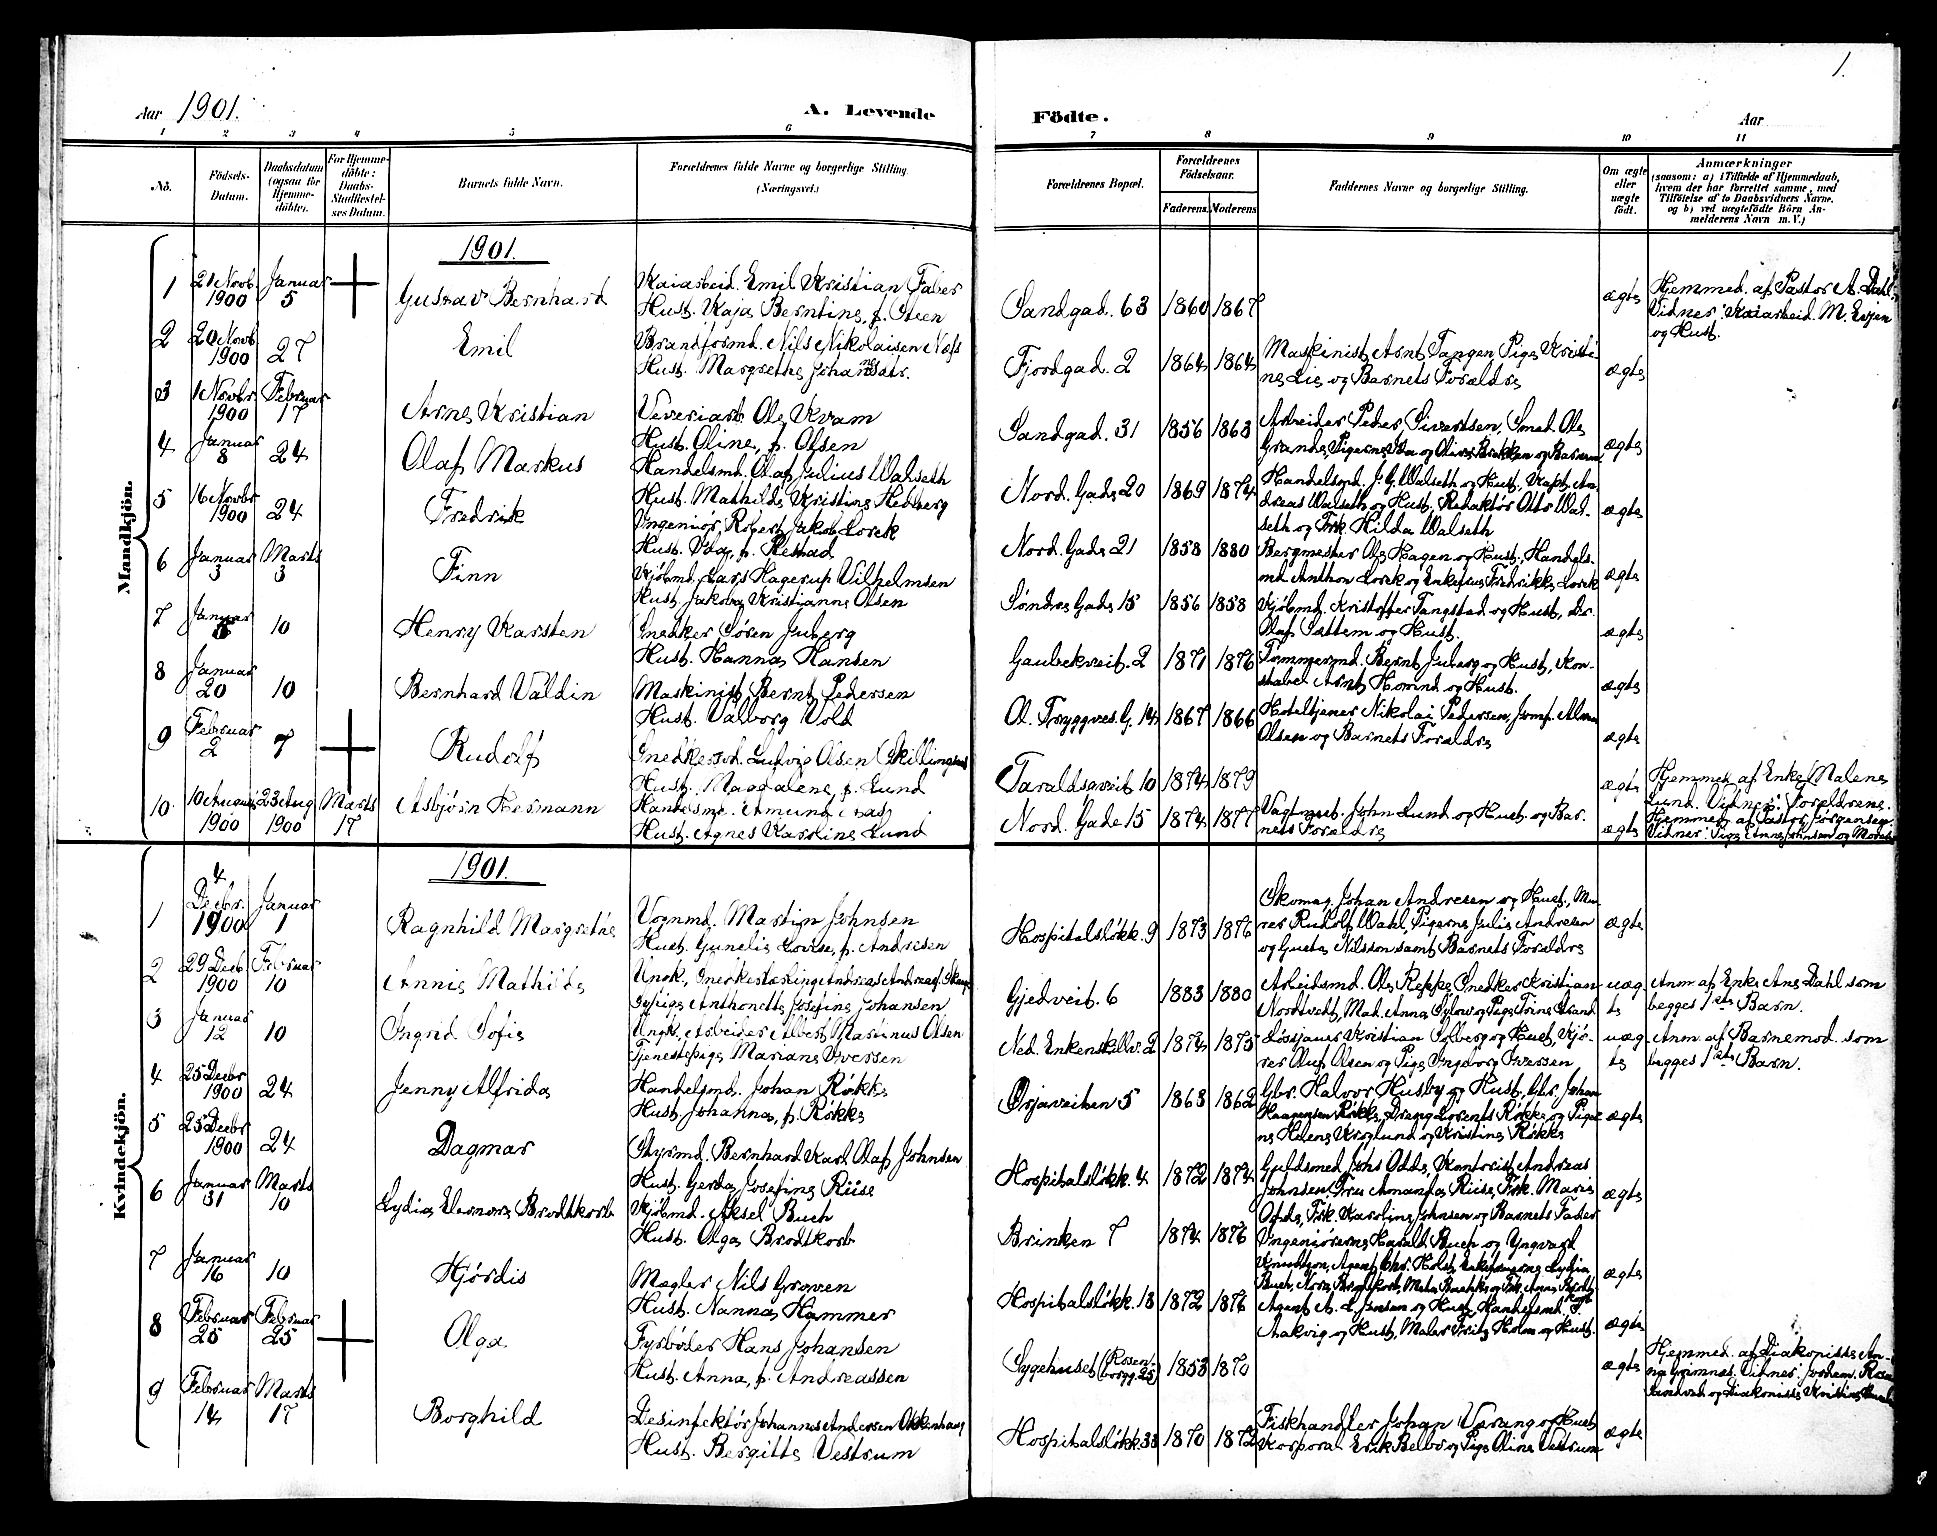 1.
Aar 1901.
A. Levende Födte.
Aar
1 2 3 4 5 6 7 8 9 10 11
No.
Födsels-
Datum.
Daabsdatum
(ogsaa for
Hjemme-
döbte).
For Hjemme-
döbte:
Daabs-
Stadfæstel-
ses Datum.
Barnets fulde Navn.
Forældrenes fulde Navne og borgerlige Stilling.
(Næringsvei.)
Forældrenes Bopæl.
Forældrenes
Födselsaar.
Faderens. Moderens.
Faddernes Navne og borgerlige Stilling.
Om ægte
eller
uægte
födt.
Anmærkninger
(saasom: a) i Tilfælde af Hjemmedaab,
hvem der har forrettet samme, med
Tilföielse af to Daabsvidners Navne,
og b) ved uægtefödte Börn An-
melderens Navn m. V.)
Mandkjön.
1901.
1
21 Novb.
1900
Januar
5
Gustav Bernhard
Kaiarbeid. Emil Kristian Faber
Hust. Kaja Berntine, f. Steen
Sandgad. 63
1860
1867
ægte
Hjemmed. af Pastor A. Dahl.
Vidner: Kaiarbeid. M. Espen
og Hust.
2
20 Novb.
1900
27
Emil
Brandformd. Nils Nikolaisen Næss
Hust. Margrethe Johannesdtr.
Fjordgad. 2
1864
1864
Maskinist Arnt Tangen Pige Kristi-
ne Lie og Barnets Forældre
ægte
3
1 Novbr
1900
Februar
17
Arne Kristian
Veveriarb. Ole Kvam
Hust. Oline, f. Olsen
Sandgad. 31
1856
1863
Arbeider Peder Sivertsen, Smed Ole
Grande, Pigerne og Oline Brekken og Barnem.
ægte
4
Januar
8
24
Olaf Markus
Handelsmd. Olaf Julius Walseth
Hust. Mathilde Kristine Hedberg
Nord. Gade 20
1869
1874
Handelsmd. J. G. Walseth og Hust., Kapt. An-
dreas Walseth og Hust., Redaktör Otto Wal-
seth og Frk. Hilda Walseth
ægte
5
16 Novbr
1900
24
Fredrik
Ingeniör Robert Jakob Lorck
Hust. Ida, f. Restad
Nord. Gade 21
1858
1880
Bergmester Ole Hagen og Hust., Handels-
md. Anthon Lorck og Enkefrue Fredrikke Lorck
ægte
6
Januar
3
Marts
3
Finn
Kjöbmd. Lars Hagerup Vilhelmsen
Hust. Jakobe Kristianne Olsen
Söndre Gade 15
1856
1858
Kjöbmd. Kristoffer Tangstad og Hust., Dr.
Olaf Sættem og Hust.
ægte
7
Januar
10
Henry Karsten
Snedker Sören Juberg
Hust. Hanna Hansen
Gaubekveit. 2
1871
1876
Tømmermd. Bernt Juberg og Hust., Kon-
stabel Arnt og Hust.
ægte
8
Januar
20
10
Bernhard Valdin
Maskinist Bernt Pedersen
Hust. Valborg Vold
Ol. Tryggves. G. 14
1867
1866
Hoteltjener Nikolai Pedersen, Jomf. Alma
Olsen og Barnets Forældre
ægte
9
Februar
2
7
Rudolf
Snedkersvd. Ludvig Olsen (Skillingsaas)
Hust. Magdalene, f. Lund
Taraldsgveit. 10
1874
1879
ægte
Hjemmed. af Enke Malene
Lund. Vidner: Forældrene.
10
10 August
1900
23 Aug
1900
Marts
17
Asbjörn Hermann
Handelsmd. Amund Aas
Hust. Agnes Karoline Lund
Nord. Gade 15
1874
1877
Vagtmst. John Lund og Hust. og Bar-
nets Forældre
ægte
Hjemmed. af Pastor Jörgensen.
Vidner: Pige Anne Johnsen og Moder
Kvindekjön.
1901.
1
4
Decbr.
1900
Januar
1
Ragnhild Margrethe
Vognmd. Martin Johnsen
Hust. Gunelie Lovise, f. Andresen
Hospitalsløkk. 9
1873
1876
Skomag. Johan Andresen og Hust., Mu-
rer Rudolf Wahl, Pigerne Julie Andresen
og Gusta Nilsson samt Barnets Forældre
ægte
2
29 Decb.
1900
Februar
10
Annie Mathilde
Ungk. Snedkerlærling Andreas Andreas.
Sypige Anthonette Josefine Johansen
Gjedveit. 6
1883
1880
Arbeidsmd. Ole Reppe, Snedker Kristian
Nordtvedt, Mad. Anna Sylow og Pige Trine Strand
uæg
te
Anm. af Enke Ane Dahl som
begges 1ste Barn.
3
Januar
12
10
Ingrid Sofie
Ungk. Arbeider Albert Marinus Olsen
Tjenestepige Mariane Iversen
Ned. Enkenskillv. 2
1874
1875
Lossjauer Kristian Solberg og Hust., Kjö-
rer Oluf Olsen og Pige Ingeborg Iversen
uæg
te
Anm. af Barnemod. som
begges 1ste Barn.
4
25 Decbr
1900
24
Jenny Alfrida
Handelsmd. Johan Røkke
Hust. Johanna, f. Røkke
Ørjaveiten 5
1863
1862
Gbr. Halvor Husby og Hust. Gbr. Johan
Haagensen Røkke, Dreng Lorents Røkke og Piger-
ne Helene Kroglund og Kristine Røkke
ægte
5
25 Decbr
1900
24
Dagmar
Styrmd. Bernhard Karl Olaf Johnsen
Hust. Gerda Josefine Riise
Hospitalsløkk. 4
1872
1874
Guldsmed Johs Odde, Kontorist Andreas
Johnsen, Frue Amanda Riise, Frk. Marie
Odde, Frk. Karoline Johnsen og Barnets Fader
ægte
6
Januar
31
Marts
10
Lydia Eleonora Brodtkorb
Kjöbmd. Aksel Buch
Hust. Olga Brodtkorb
Brinken 7
1874
1876
Ingeniörerne Harald Buch og Yngvard
Knudtzon, Agent Chr. Holst, Enkefruerne Lydia
Buch, Nora Brodtkorb,
ægte
7
Januar
16
10
Hjördis
Mægler Nils Groven
Hust. Nanna Hammer
Hospitalsløkk. 13
1872
1876
Agent A. L. Jensen og Hust. Handelsmd.
Aakvig og Hust., Maler Fritz Holm og Hust.
ægte
8
Februar
25
Februar
25
Olga
Fyrbøder Hans Johansen
Hust. Anna, f. Andreassen
Sygehuset (Rosen-
borgg. 25)
1853
1870
ægte
Hjemmed. af Diakonisse An-
na Grimnes. Vidner: Jordem.
og Diakonisse Kristine
9
Februar
14
Marts
17
Borghild
Desinfektör Johannes Andersen Okkenhaug
Hust. Bergitte Vestrum
Hospitalsløkk. 33
1870
1872
Fiskhandler Johan Værang og Hust.
Korporal Erik Belbo og Pige Oline Vestrum
ægte